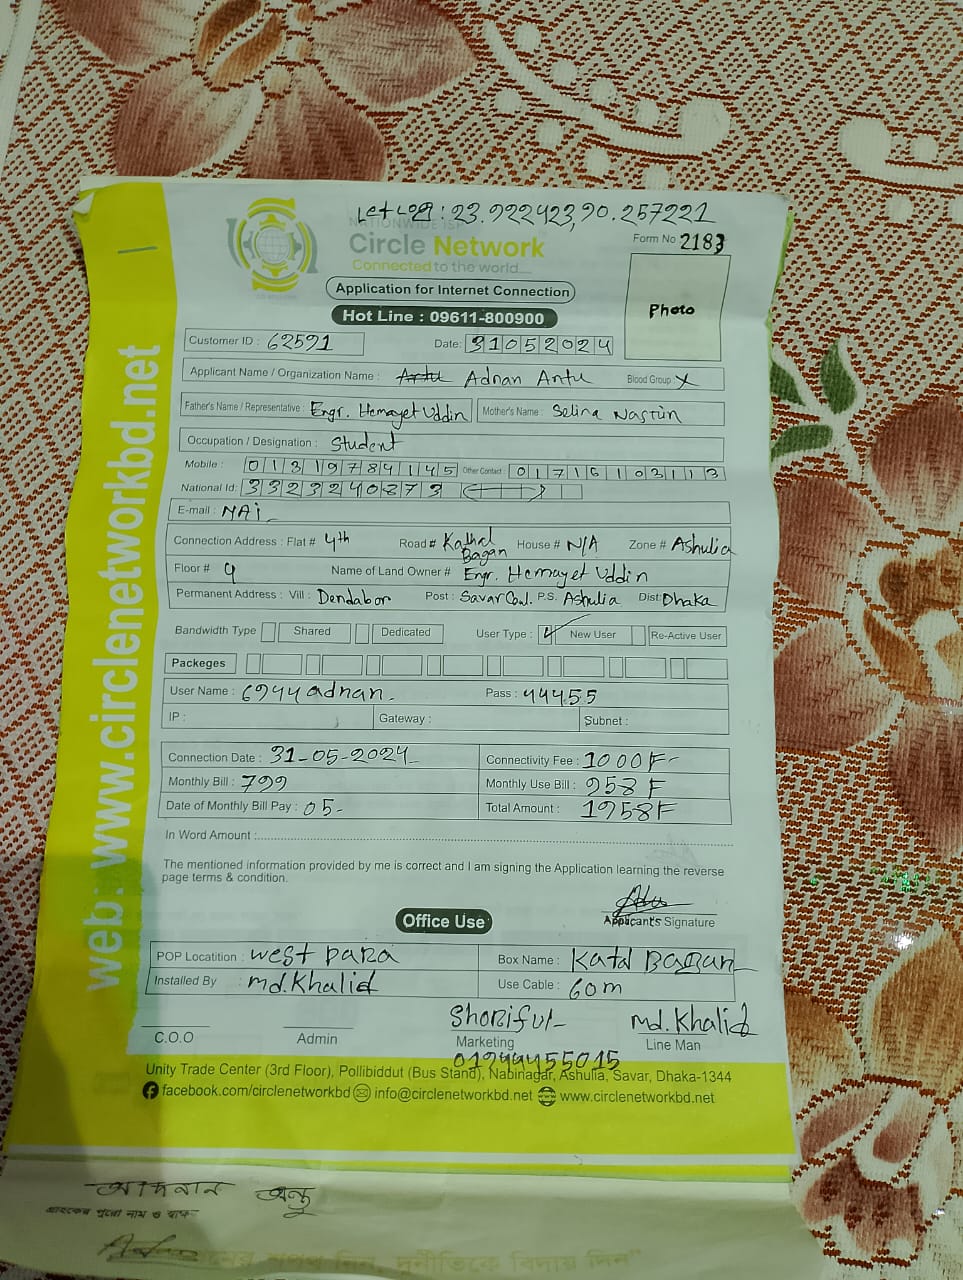 Let Log: 23.922423,90.257221
NATIONWIDE ISP
Circle Network
Connected to the world....
Form No 2183
Application for Internet Connection
Hot Line : 09611-800900
Photo
Customer ID : 62591 Date: 31052024
Applicant Name / Organization Name : Adnan Antu Blood Group : X
Father's Name / Representative : Engr. Hemayet Uddin Mother's Name : Selina Nasrin
Occupation / Designation : Student
Mobile : 01319784145 Other Contact : 01715103113
National Id: 3323240873
E-mail : NAi
Connection Address : Flat # 4th Road # Kathal Bagan House # N/A Zone # Ashulia
Floor # 9 Name of Land Owner # Engr. Hemayet Uddin
Permanent Address : Vill : Dendabor Post : Savar Cal. P.S. Ashulia Dist: Dhaka
Bandwidth Type Shared Dedicated User Type : New User Re-Active User
Packeges
User Name : 6944adnan. Pass : 44455
IP : Gateway : Subnet :
Connection Date : 31-05-2024 Connectivity Fee : 1000F
Monthly Bill : 799 Monthly Use Bill : 958F
Date of Monthly Bill Pay : 05- Total Amount : 1958F
In Word Amount :
The mentioned information provided by me is correct and I am signing the Application learning the reverse
page terms & condition.
Applicant's Signature
Office Use
POP Locatition : west para Box Name : Katal Bagan
Installed By : md.Khalid Use Cable : 60m
Shoriful Md. Khalid
C.O.O Admin Marketing Line Man
01944455015
Unity Trade Center (3rd Floor), Pollibiddut (Bus Stand), Nabinagar, Ashulia, Savar, Dhaka-1344
facebook.com/circlenetworkbd info@circlenetworkbd.net www.circlenetworkbd.net
web: www.circlenetworkbd.net
আদনান অন্তু
গ্রাহকের পুরো নাম ও স্বাক্ষর
দিন, দুর্নীতিকে বিদায় দিন"